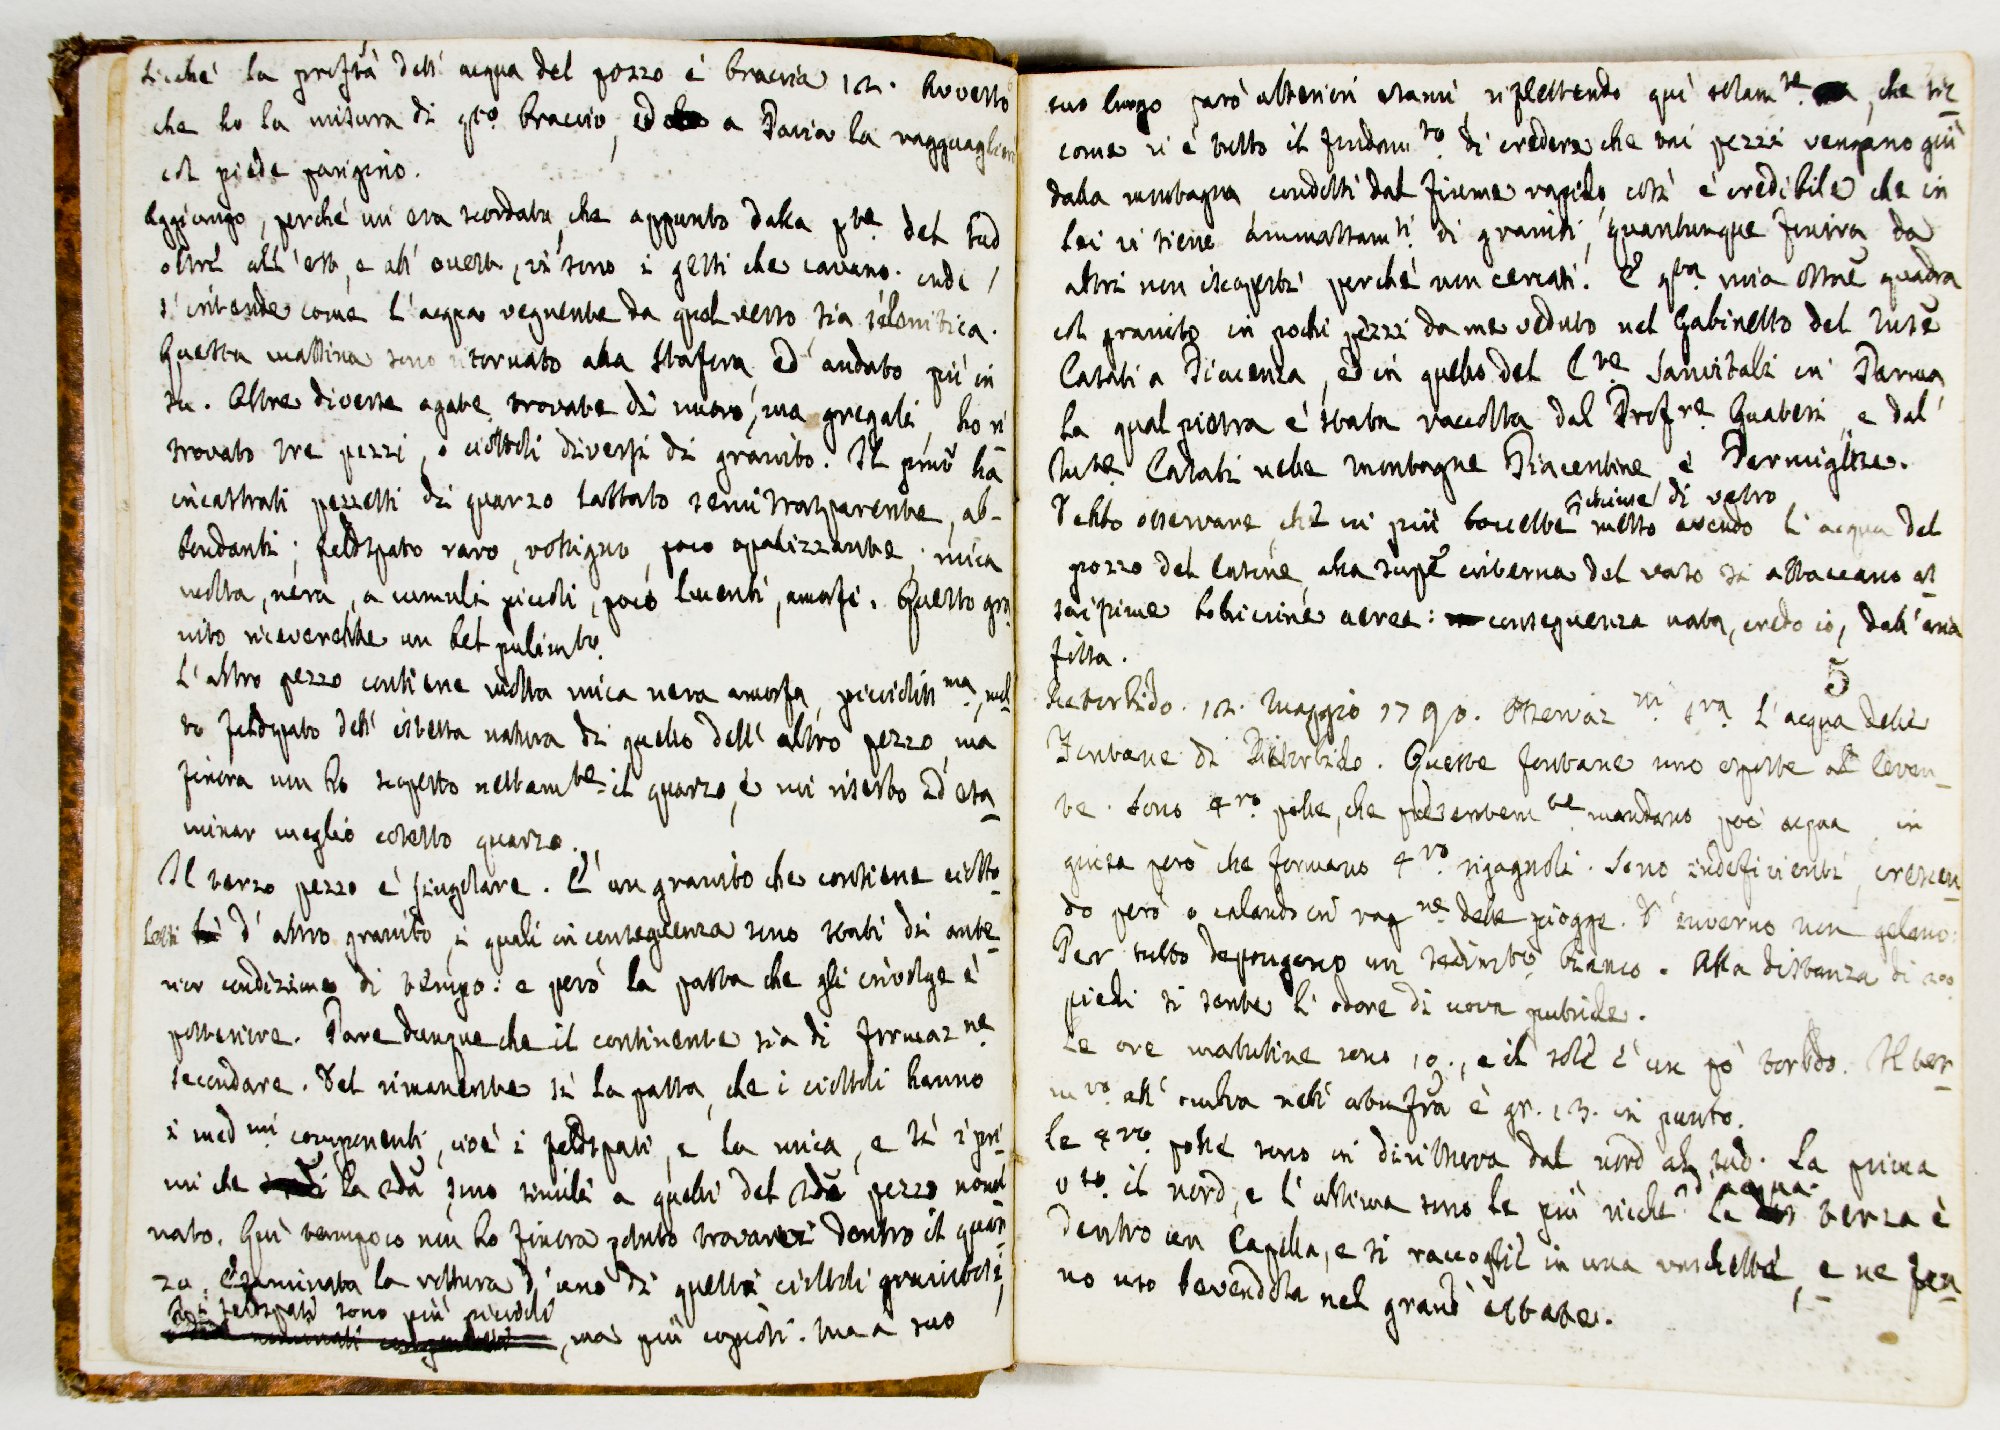 sicché la profტà dell' acqua del pozzo è braccia 12. Avverto
che ho la misura di qto braccio, ed a Pavia la ragguaglierò
col piede parigino.
Aggiungo, perché mi era scordato che appunto dalla pte del sud
oltre all' est, e all' ovest, vi sono i gessi che cavano. indi
s' intende come l' acqua vegnente da quel verso sia selenitica.
Questa mattina sono ritornato alla Stafora ed andato più in
su. Oltre diverse agate trovate di nuovo, ma gregali, ho ri
trovato tre pezzi, o ciottoli diversi di granito. Il pmo ha
incastrati pezzetti di quarzo lattato semitrasparente, ab-
bondanti; feldspato raro, rossigno, poco opalizzante; mica
molta, nera, a cumuli piccoli, poco lucenti, amorfi. Questo gra
nito riceverebbe un bel pulimto.
L' altro pezzo contiene molta mica nera amorfa, picciolissma, mol
to feldspato dell' istessa natura di quello dell' altro pezzo, ma
finora non ho scoperto nettamte il quarzo, e mi riserbo ad esa
minar meglio cotesto quarzo.
Il terzo pezzo è singolare. È un granito che contiene ciotto
letti d' altro granito, i quali in conseguenza sono stati di ante
rior condizione di tempo: e però la pasta che gli involge è
posteriore. Pare dunque che il continente sia di formazne
secondare. Del rimanente sì la pasta, che i ciottoli hanno
i medmi componenti, cioè i feldspati, e la mica, e sì i pri
mi che la 2da sono simili a quelli del 2do pezzo nomi
nato. Quì tampoco non ho finora potuto trovarci dentro il quar
zo. Esaminata la rottura d' uno di questi ciottoli granitosi,
i feldspati sono più piccioli
, ma più copiosi. Ma a suo
suo luogo farò ulteriori esami, riflettendo quì solamte, che sic
come si è tutto il fondamto di credere che tai pezzi vengano giù
dalla montagna condotti dal fiume rapido, così è credibile che in
lei vi siene ammassamti di graniti, quantunque finora da
altri non iscoperti perché non cercati. E qta mia ossne quadra
col granito in pochi pezzi da me veduto nel Gabinetto del
Casati a Piacenza, ed in quello del Cte Sanvitali in Parma
la qual pietra è stata raccolta dal Profre Guatteri, e dal
Casati nelle montagne Piacentine, e Parmigine.
Debbo osservare, che in più boccette
schiuse di vetro
messo avendo l' acqua del
pozzo del Casone, alla supe interna del vaso si attaccano as
saissime bollicine aeree: conseguenza nata, credo io, dall' aria
fissa.
5
Retorbido. 12. Maggio 1790. Osservazni sva L' acqua delle
Fontane di Retorbido. Queste fontane sono esposte al levan
te. Sono 4ro polle, che presentemte mandano poc' acqua, in
guisa però che formano 4ro rigagnoli. Sono indeficienti, crescen
do però o calando in ragne delle piogge. D' inverno non gelano.
Per tutto depongono un sedimto bianco. Alla distanza di
piedi si sente l' odore di uova putride.
Le ore matutine sono 10., e il sole è un pò torbido. Il ter
mro all' ombra nell' atmosfra è gr. 13. in punto.
Le 4ro polle sono in dirittura dal nord al sud. La prima
vso il nord, e l' ultima sono le più ricche
d' acqua.
La terza è
dentro un Capella, e si raccoglie in una vaschetta, e ne fan
no uso bevendola nel grand' estate.